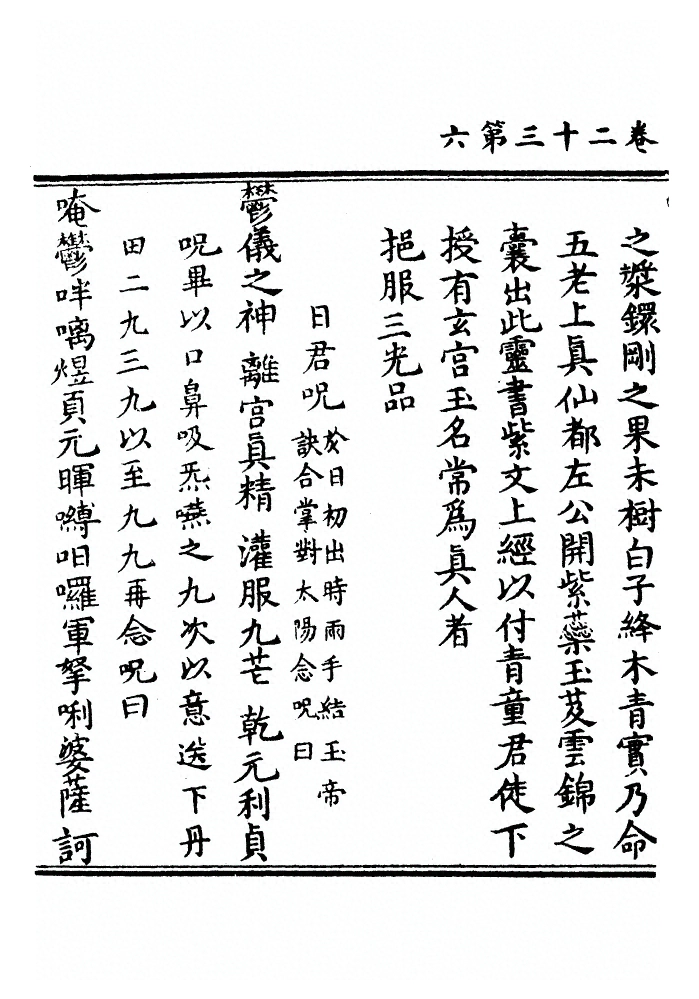 卷二十三第六
之漿鐶剛之果未樹白子絳木青實乃命
五老上真仙都左公開紫蘂玉芨雲錦之
囊出此靈書紫文上經以付青童君使下
授有玄宮玉名常為真人者
挹服三光品
日君呪
於日初出時兩手結玉帝
訣合掌對太陽念呪曰
鬱儀之神 離宮真精 灌服九芒 乾元利貞
呪畢以口鼻吸炁嚥之九次以意送下丹
田二九三九以至九九再念呪曰
唵鬱吽㗭煜頁元暉嚩呬囉軍拏唎婆薩訶